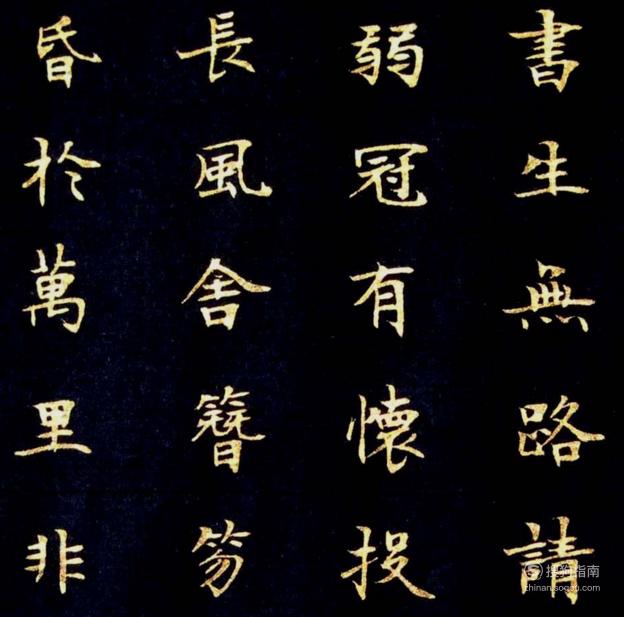 書生無路請
弱冠有懷投
長風舍簪笏
昏於萬里非
搜狗指南
zhinan.sogou.com